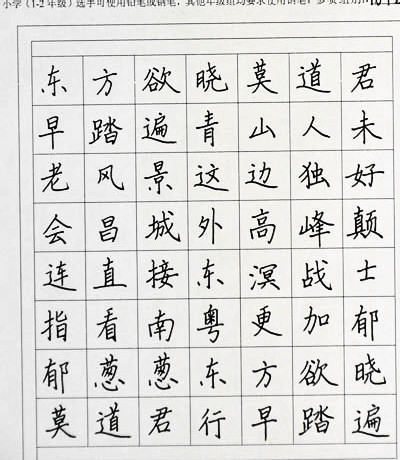 小学（1-2年级）选手可使用铅笔或钢笔，其他年级组均要求使用钢笔，参赛组别
东方欲晓莫道君
早踏遍青山人未
老风景这边独好
会昌城外高峰颠
连直接东溟战士
指看南粤更加郁
郁葱葱东方欲晓
莫道君行早踏遍